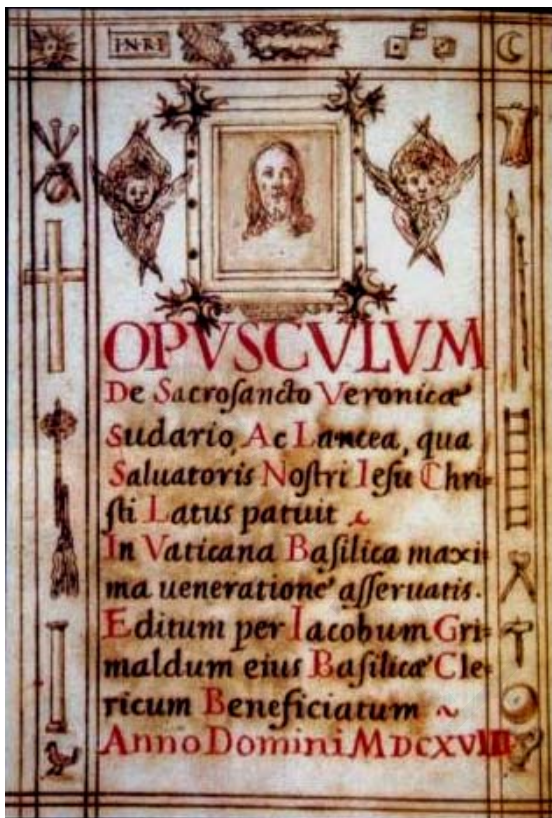 I·N·R·I
OPVSCVLVM
De Sacroſancto Veronicæ
Sudario, Ac Lancea, qua
Saluatoris Noſtri Ieſu Chri=
ſti Latus patuit
In Vaticana Baſilica maxi=
ma ueneratione aſſeruatis.
Editum per Iacobum Gri=
maldum eius Baſilicæ Cle=
ricum Beneficiatum ~
Anno Domini MDCXVIII